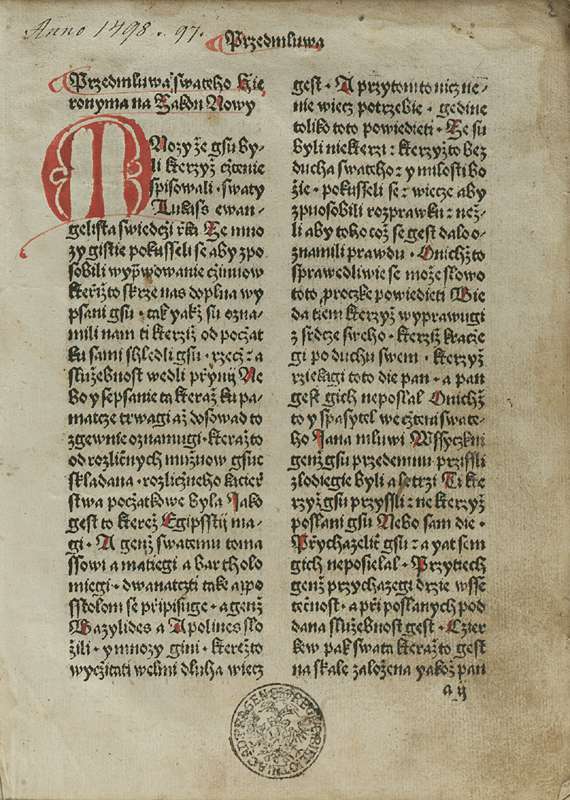 Anno 1498. 97.
Przedmluwa
Przedmluwa swateho Hie
ronyma na Zakon Nowy
MNozy že gsu by-
li kterzyž cžtenie
spisowali · swaty
Lukass ewan-
gelista swiedcži řka Ze mno
zy gistie pokusseli se aby zpo
sobili wyprwowanie cžinuow
kteřižto skrze nas doplna wy
psani gsu · tak yakž su ozna-
mili nam ti kteriž od pocžat
ku sami shledli gsu · rzecž : a
služebnost wedli přynij Ne
bo y sepsanie ta kteraž ku pa-
matcze trwagi až dosowad to
zgewnie oznamugi · kteražto
od rozlicžnych mužuow gsuc
skladana · rozlicžneho kacier
stwa pocžatkowe byla Jako
gest to kterež Egipsstij ma-
gi · A genž swatemu toma
ssowi a matiegi a bartholo
miegi · dwanatczti take apo
sstolom se připisuge · a genž
Bazylides a Apolines slo
žili · y mnozy gini · kterežto
wycžitati welmi dluha wiecz
gest · A přytomto nicz ne-
nie wiecz potrzebie · gedine
toliko toto powiedieti · Ze su
byli niekterzi : kterzyžto bez
ducha swateho : y milosti bo
žie · pokusseli se : wiecze aby
zpuosobili rozprawku : než-
li aby toho což se gest dalo o-
znamili prawdu · Onichžto
sprawedliwie se može slowo
toto proczke powiedieti Bie
da tiem kterzyž wyprawugi
z srdcze sweho · kterziž kracie
gi po duchu swem · kterzyž
rziekagi toto die pan · a pan
gest gich neposlal Onichž
to y spasytel we cžteni swate-
ho Jana mluwi Wssyczkni
genž gsu przedemnu przissli
zlodiegie byli a lotrzi Ti kte
rzyž gsu przyssli : ne kterzyž
poslani gsu Nebo sam die ·
Přychazelit gsu : a yat sem
gich neposielal · Przytiech
genž przychazegi drzie wsse
tecžnost · a při poslanych pod
dana služebnost gest · Czier
kew pak swata kteražto gest
na skale založena yakož pan
a ij